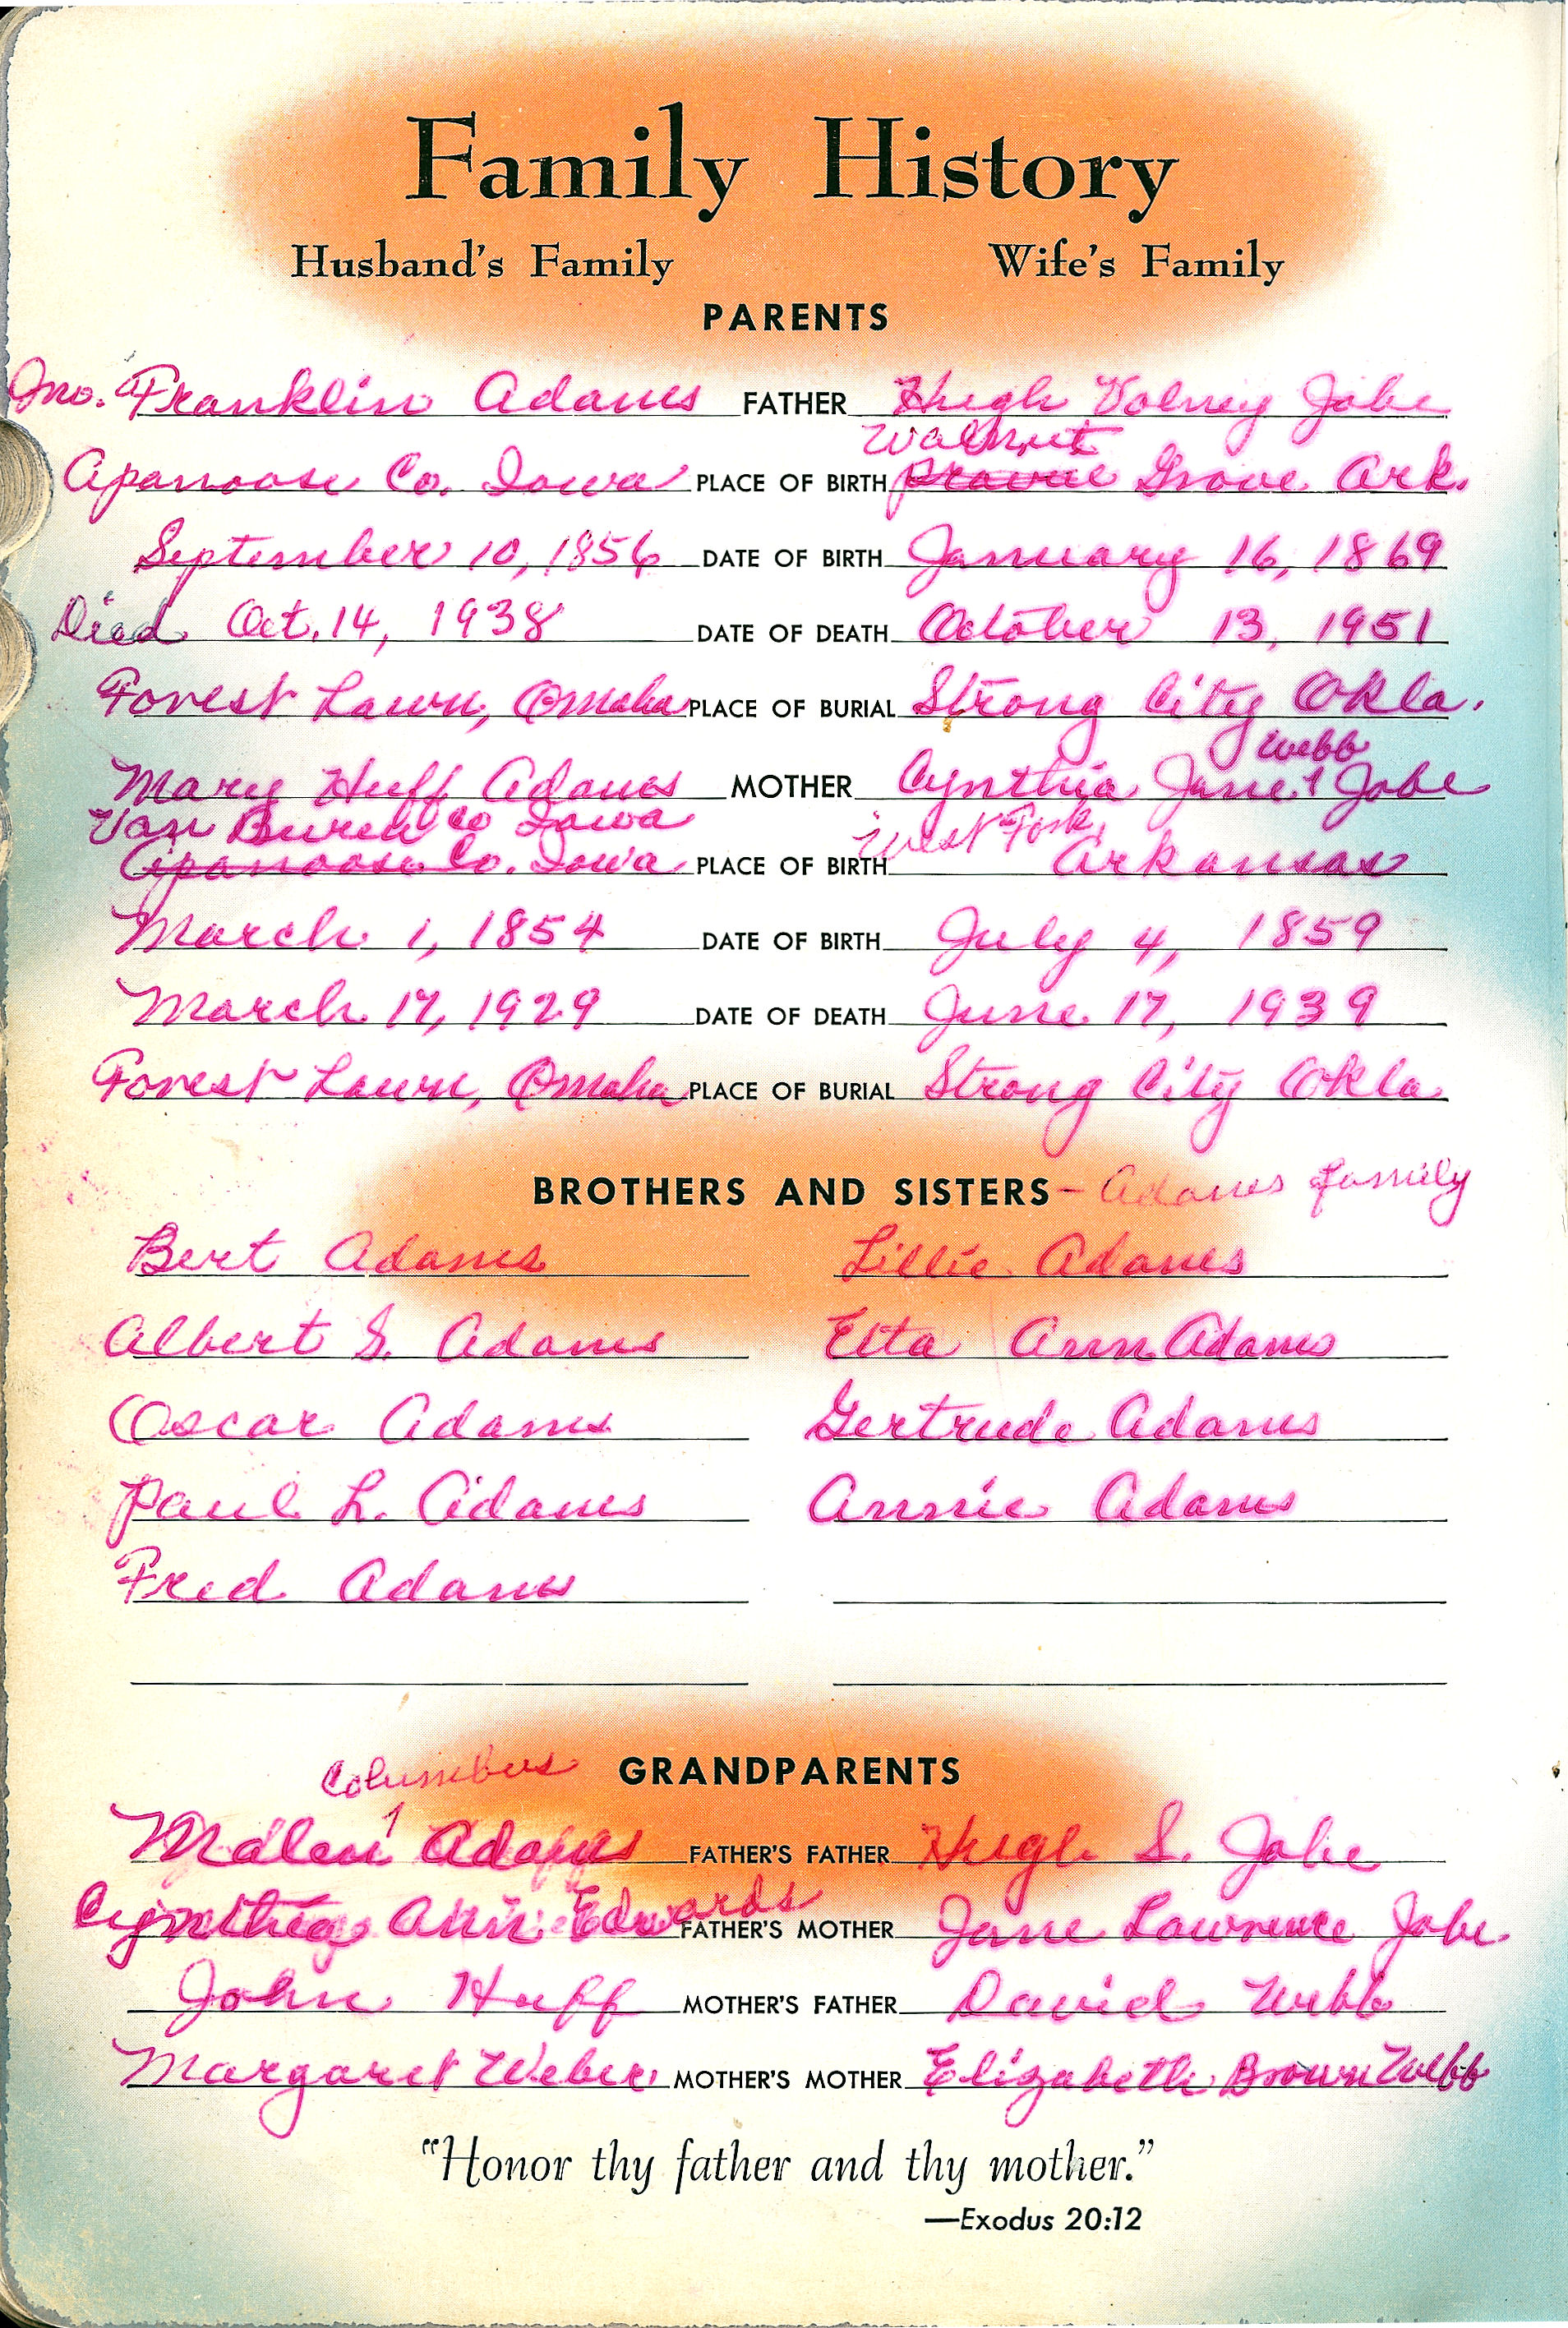 Family History
Husband's Family Wife's Family
PARENTS
Jno. Franklin Adams FATHER Hugh Volney Jobe
Walnut
Apanoose Co. Iowa PLACE OF BIRTH Prairie Grove Ark.
September 10, 1856 DATE OF BIRTH January 16, 1869
Died Oct. 14, 1938 DATE OF DEATH October 13, 1951
Forest Lawn, Omaha PLACE OF BURIAL Strong City Okla.
Webb
Mary Huff Adams MOTHER Cynthia Jane Jobe
Van Buren Co Iowa West Fork,
Apanoose Co. Iowa PLACE OF BIRTH Arkansas
March 1, 1854 DATE OF BIRTH July 4, 1859
March 17, 1929 DATE OF DEATH June 17, 1939
Forest Lawn, Omaha PLACE OF BURIAL Strong City Okla
BROTHERS AND SISTERS - Adams family
Bert Adams Lillie Adams
Albert G. Adams Etta Ann Adams
Oscar Adams Gertrude Adams
Paul L. Adams Annie Adams
Fred Adams
Columbus GRANDPARENTS
Adams FATHER'S FATHER Hugh S. Jobe
Cynthia Ann Edwards FATHER'S MOTHER Jane Lawrence Jobe
John Huff MOTHER'S FATHER David Webb
Margaret Weber MOTHER'S MOTHER Elizabeth Brown Webb
"Honor thy father and thy mother."
—Exodus 20:12